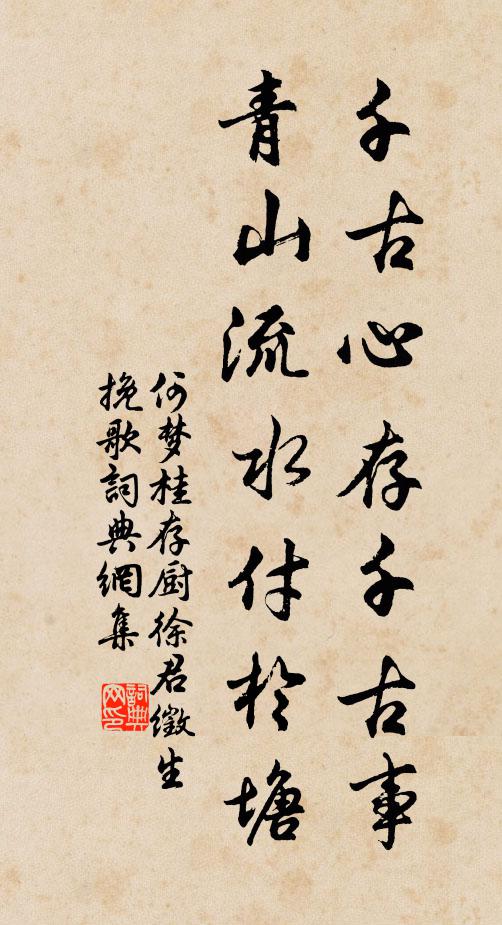 千古心存千古事
青山流水付於塘
何梦桂存厨徐君徵生
挽歌詞典網集
詞典网印